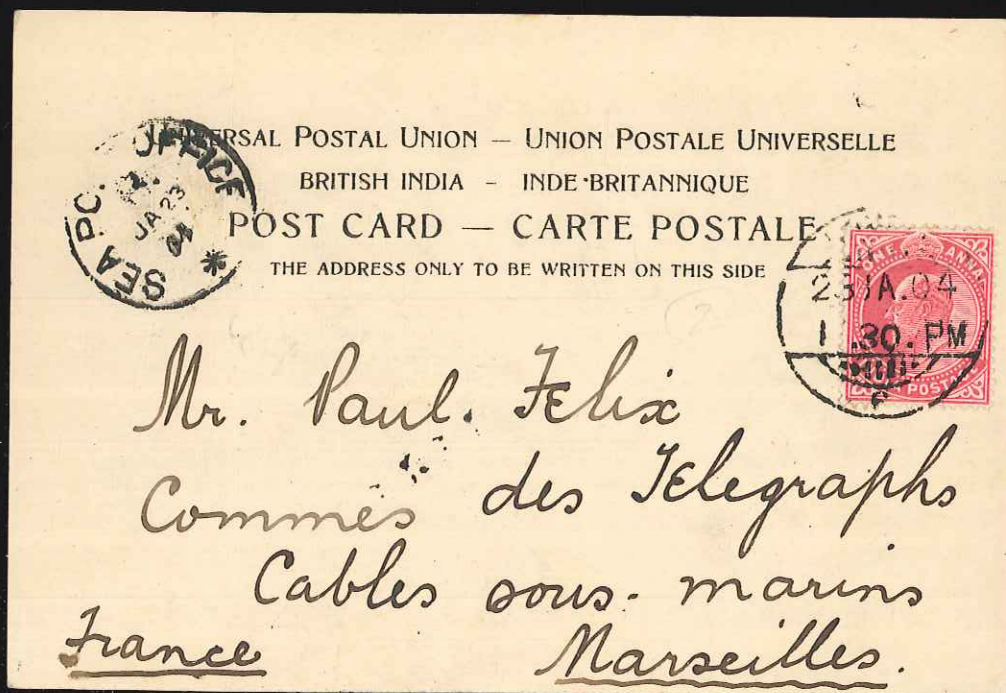 UNIVERSAL POSTAL UNION — UNION POSTALE UNIVERSELLE
BRITISH INDIA - INDE-BRITANNIQUE
POST CARD — CARTE POSTALE
THE ADDRESS ONLY TO BE WRITTEN ON THIS SIDE
SEA OFFICE
JA 23
04
ONE ANNA
23 JA. 04
1.30. PM
POSTAG
Mr. Paul. Felix
Commés des Telegraphs
Cables sous-marins
France Marseilles.